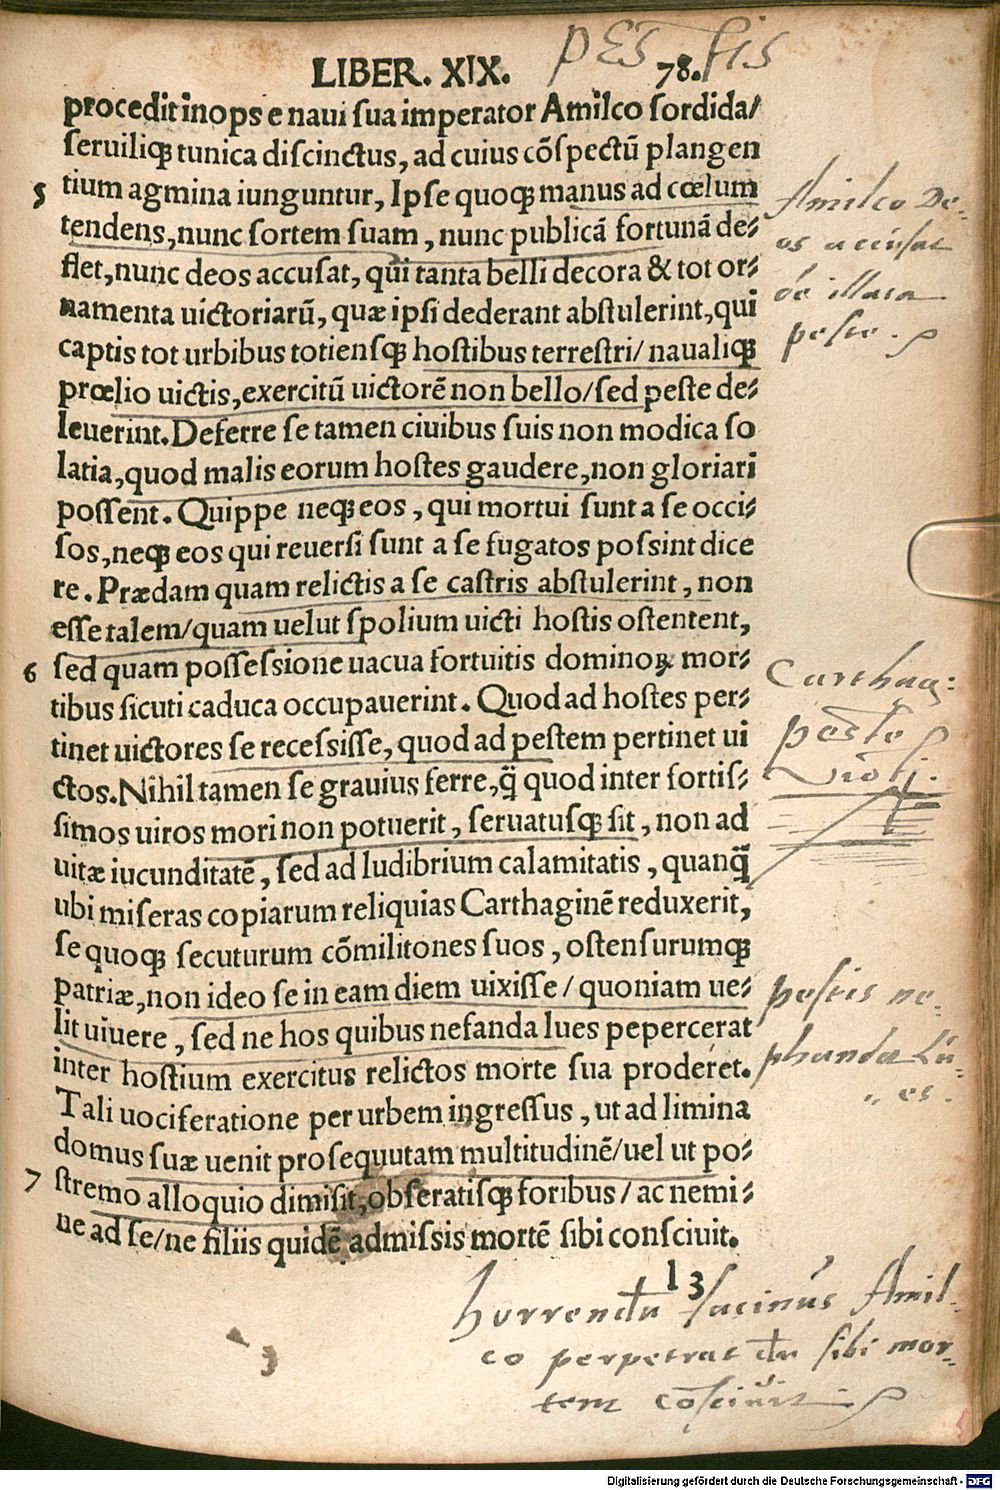 LIBER. XIX. 78.
PESTIS
procedit inops e naui sua imperator Amilco sordida/
seruiliqꝫ tunica discinctus, ad cuius cõspectũ plangen
5 tium agmina iunguntur, Ipse quoqꝫ manus ad cœlum
tendens, nunc sortem suam, nunc publicã fortunã de⸗
flet, nunc deos accusat, qui tanta belli decora & tot or⸗
namenta uictoriarũ, quæ ipsi dederant abstulerint, qui
captis tot urbibus totiensqꝫ hostibus terrestri/ naualiqꝫ
prœlio uictis, exercitũ uictorẽ non bello/ sed peste de⸗
leuerint. Deferre se tamen ciuibus suis non modica so
latia, quod malis eorum hostes gaudere, non gloriari
possent. Quippe neqꝫ eos, qui mortui sunt a se occi⸗
sos, neqꝫ eos qui reuersi sunt a se fugatos possint dice
re. Prædam quam relictis a se castris abstulerint, non
esse talem/ quam uelut spolium uicti hostis ostentent,
6 sed quam possessione uacua fortuitis dominoꝝ mor⸗
tibus sicuti caduca occupauerint. Quod ad hostes per⸗
tinet uictores se recessisse, quod ad pestem pertinet ui
ctos. Nihil tamen se grauius ferre, q̃ quod inter fortis⸗
simos uiros mori non potuerit, seruatusqꝫ sit, non ad
uitæ iucunditatẽ, sed ad ludibrium calamitatis, quanq̃
ubi miseras copiarum reliquias Carthaginẽ reduxerit,
se quoqꝫ secuturum cõmilitones suos, ostensurumqꝫ
patriæ, non ideo se in eam diem uixisse/ quoniam ue⸗
lit uiuere, sed ne hos quibus nefanda lues pepercerat
inter hostium exercitus relictos morte sua proderet.
Tali uociferatione per urbem ingressus, ut ad limina
domus suæ uenit prosequutam multitudinẽ/ uel ut po⸗
7 stremo alloquio dimisit, obseratisqꝫ foribus/ ac nemi⸗
ne ad se/ ne filiis quidẽ admissis mortẽ sibi consciuit.
Amilco De⸗
os accusat
ob illata
peste.
Carthag:
peste
Victi.
pestis ne⸗
phanda Lu⸗
es.
13
horrendũ facinus Amil⸗
co perpetrat dũ sibi mor⸗
tem cõsciuit
3
Digitalisierung gefördert durch die Deutsche Forschungsgemeinschaft - DFG